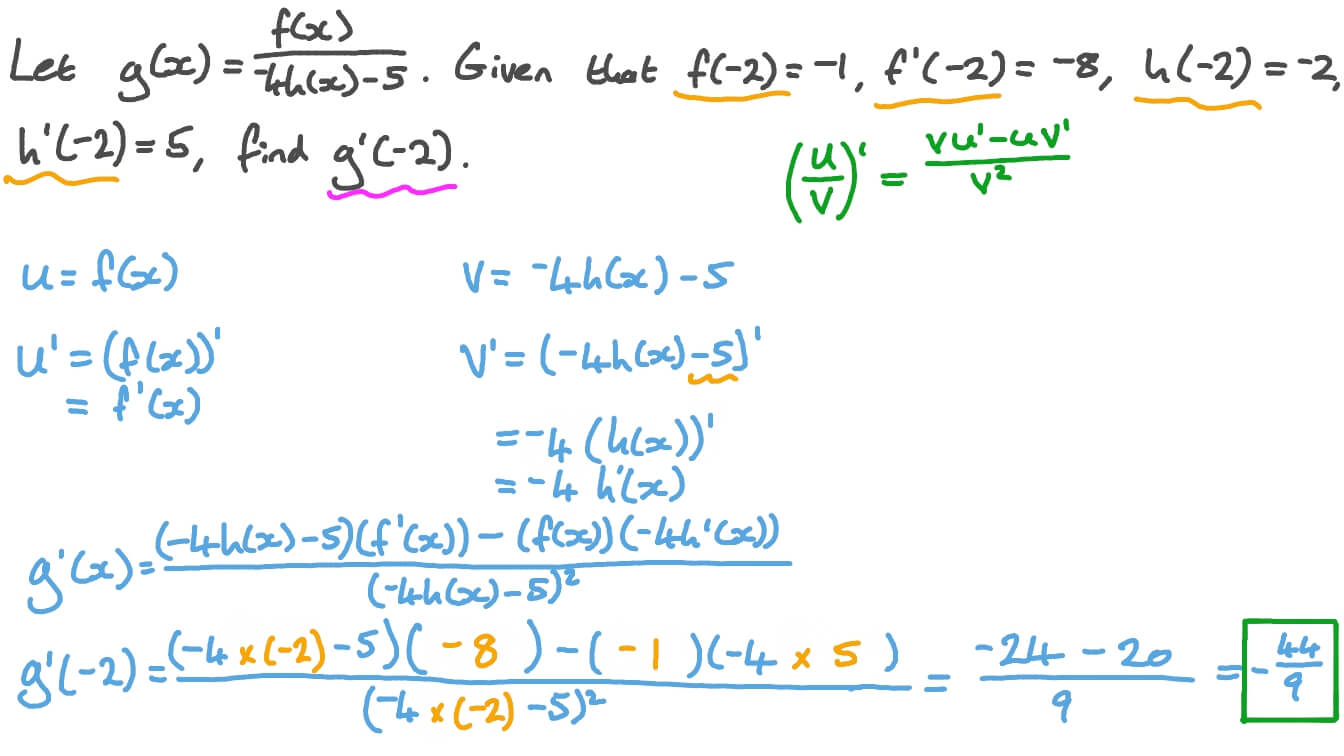 Let g(x) = f(x) / (-4h(x) - 5). Given that f(-2) = -1, f'(-2) = -8, h(-2) = -2,
h'(-2) = 5, find g'(-2).
(u/v)' = (vu' - uv') / v²
u = f(x)
v = -4h(x) - 5
u' = (f(x))'
= f'(x)
v' = (-4h(x) - 5)'
= -4 (h(x))'
= -4 h'(x)
g'(x) = ((-4h(x) - 5)(f'(x)) - (f(x))(-4h'(x))) / (-4h(x) - 5)²
g'(-2) = ((-4 × (-2) - 5)(-8) - (-1)(-4 × 5)) / (-4 × (-2) - 5)² = (-24 - 20) / 9 = -44/9